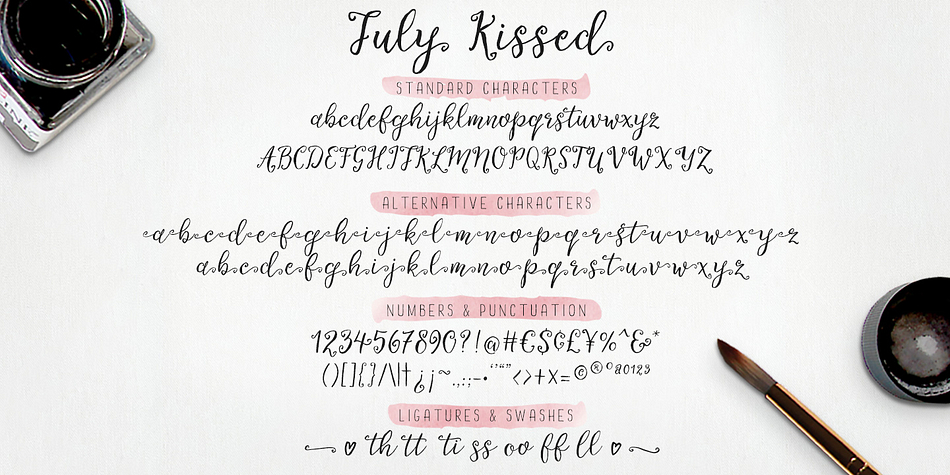 July Kissed
STANDARD CHARACTERS
abcdefghijklmnopqrstuvwxyz
ABCDEFGHIJKLMNOPQRSTUVWXYZ
ALTERNATIVE CHARACTERS
abcdefghijklmnopqrstuvwxyz
abcdefghijklmnopqrstuvwxyz
NUMBERS & PUNCTUATION
1234567890?!@#€$¢£¥%^&*
()[]{}/\|†¿¡~.,:;-•‘’“”<>+x=©®°ao123
LIGATURES & SWASHES
th tt ti ss oo ff ll